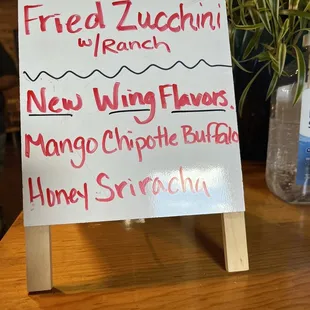 Fried Zucchini
w/Ranch
New Wing Flavors.
Mango Chipotle Buffalo
Honey Sriracha